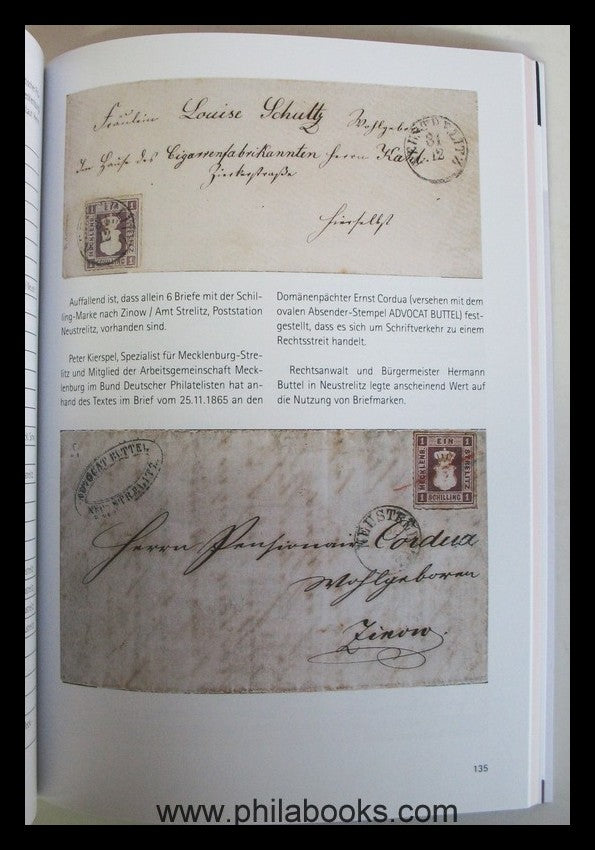 Fräulein Louise Schultz Wohlgeb
Im Hause des Cigarrenfabrikannten Herrn
Zierkerstraße
Hierselbst
31
12
1 EIN 1
MECKLENB. STRELITZ
1 SCHILLING 1
Auffallend ist, dass allein 6 Briefe mit der Schil-
ling-Marke nach Zinow / Amt Strelitz, Poststation
Neustrelitz, vorhanden sind.
Peter Kierspel, Spezialist für Mecklenburg-Stre-
litz und Mitglied der Arbeitsgemeinschaft Meck-
lenburg im Bund Deutscher Philatelisten hat an-
hand des Textes im Brief vom 25.11.1865 an den
Domänenpächter Ernst Cordua (versehen mit dem
ovalen Absender-Stempel ADVOCAT BUTTEL) fest-
gestellt, dass es sich um Schriftverkehr zu einem
Rechtsstreit handelt.
Rechtsanwalt und Bürgermeister Hermann
Buttel in Neustrelitz legte anscheinend Wert auf
die Nutzung von Briefmarken.
ADVOCAT BUTTEL
1 EIN 1
MECKLENB. STRELITZ
1 SCHILLING 1
Herrn Pensionair Cordua
Wohlgeboren
Zinow
135
www.philabooks.com